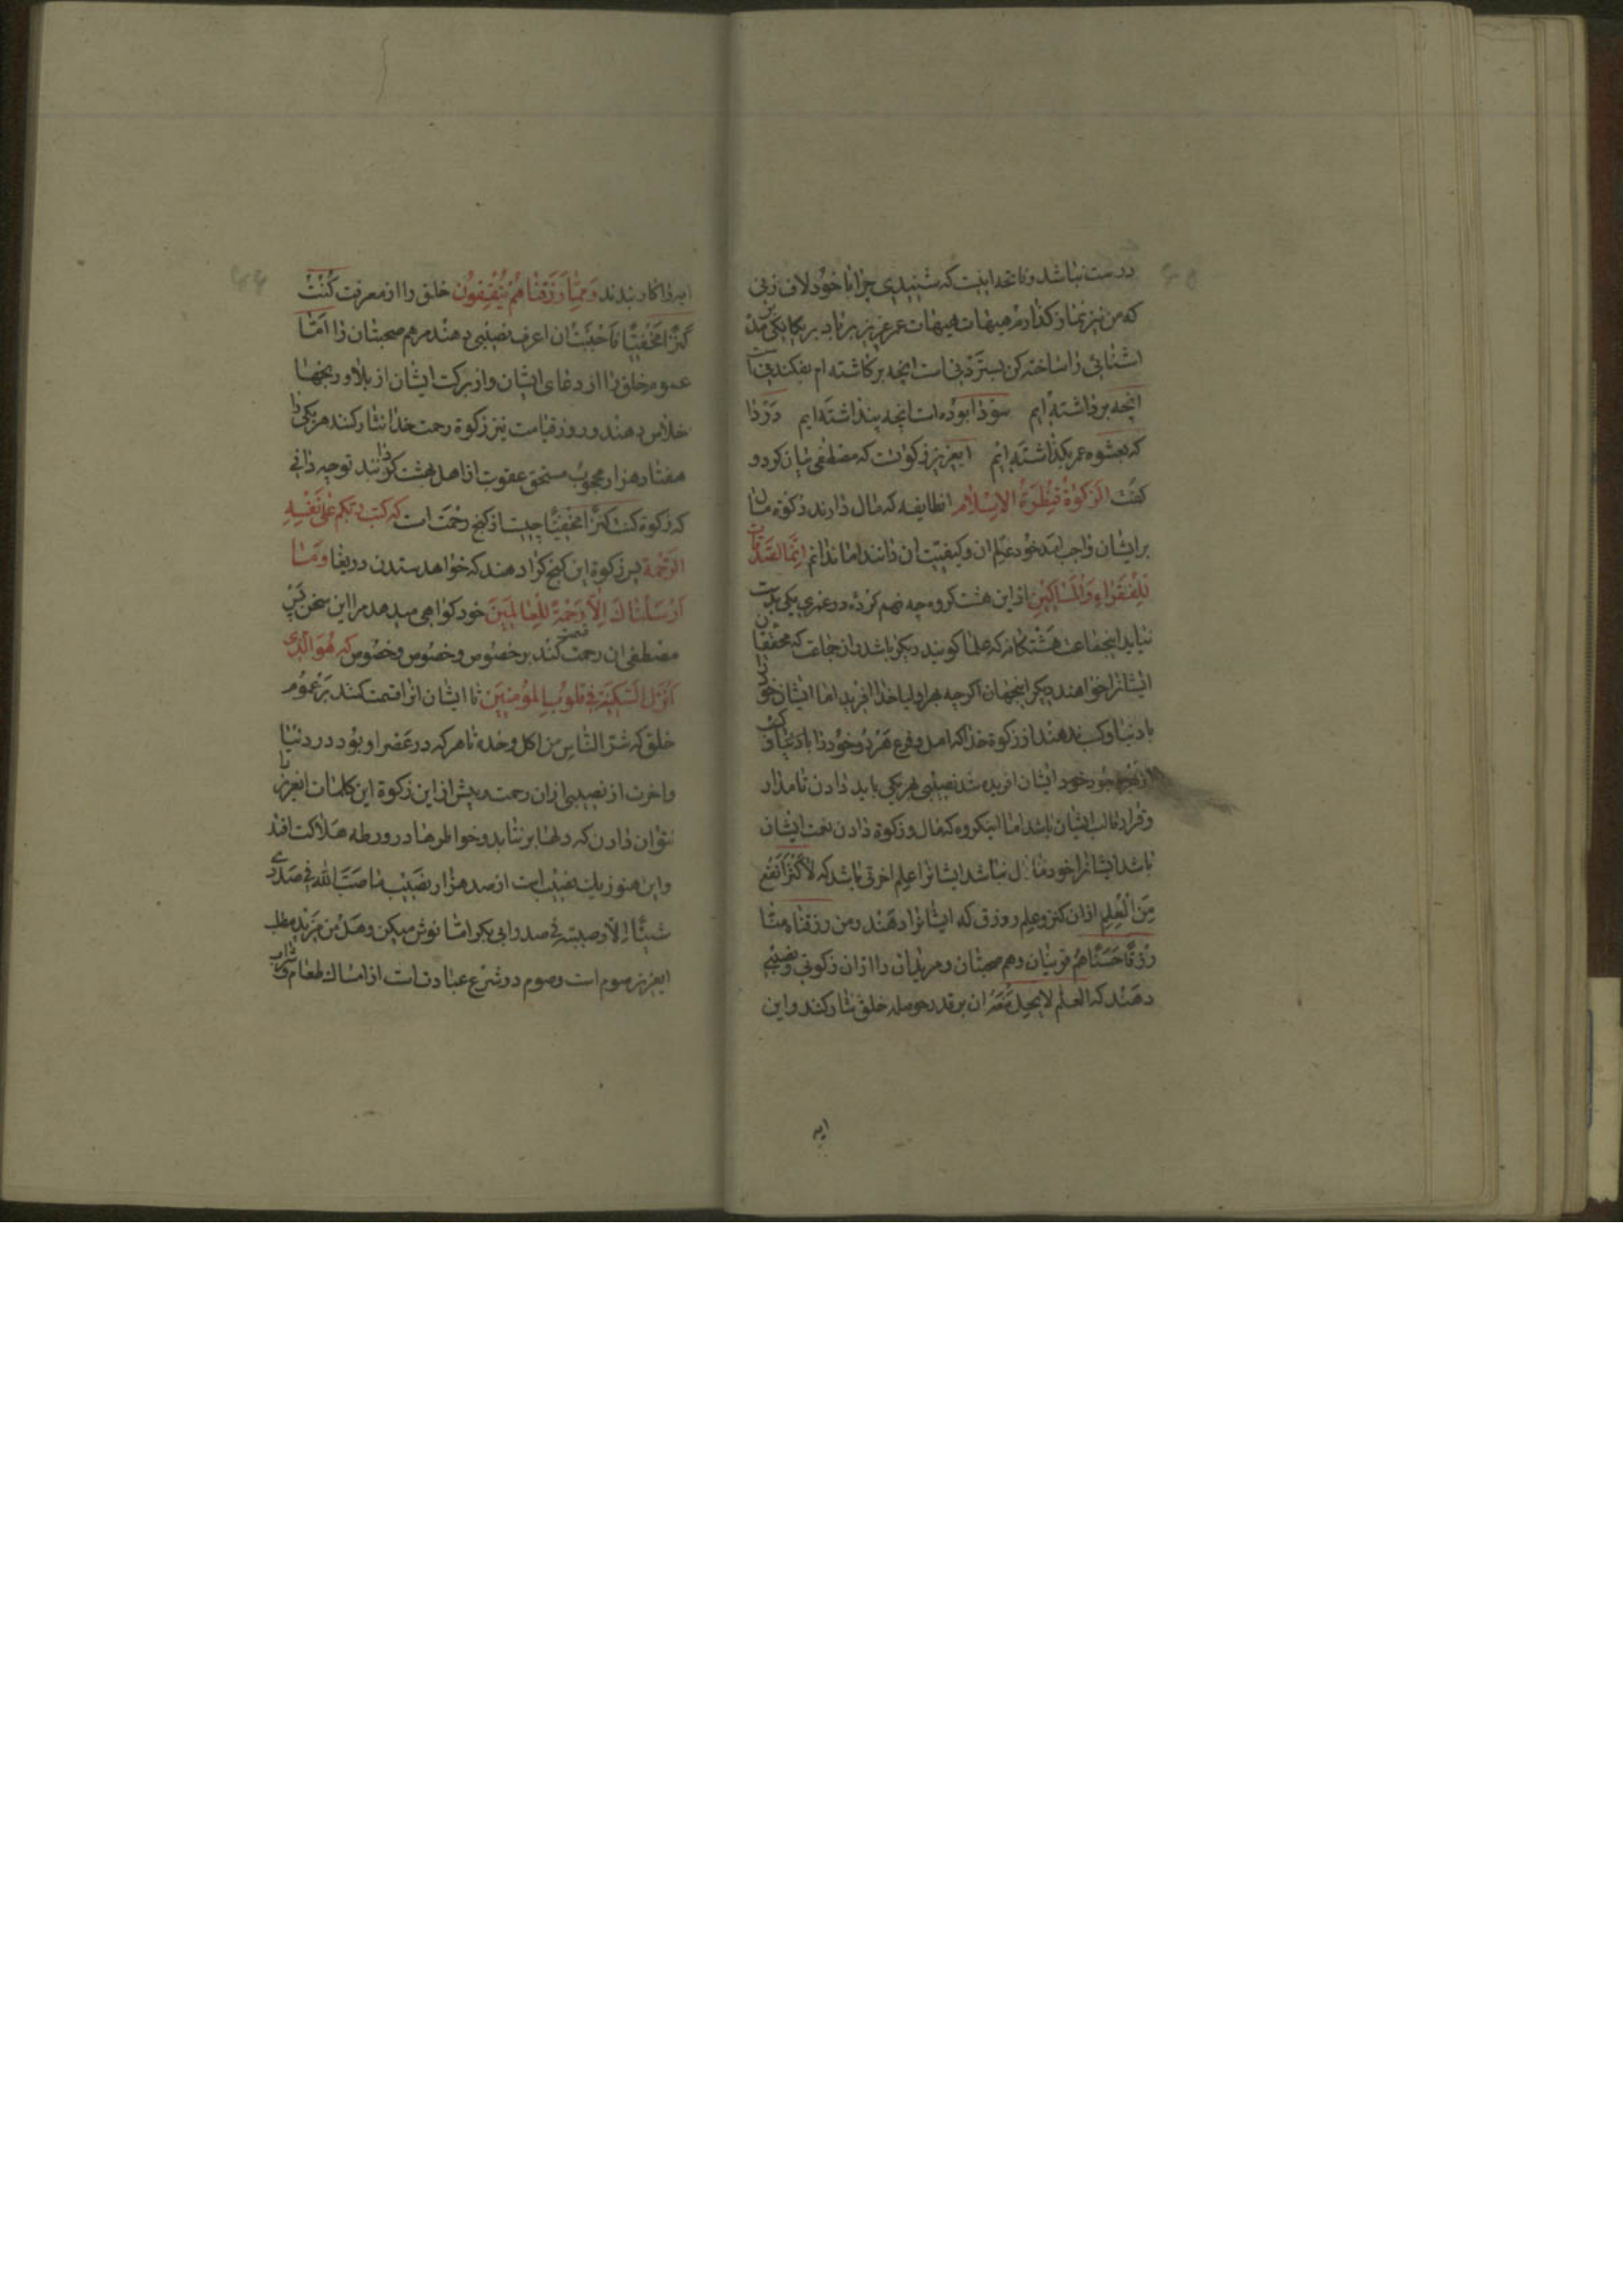 درست نباشد و فاتحه اینست که شنیدی چرا با خود لاف زنی
که من نیز نماز گذارم هیهات هیهات عمر عزیز بر باد
اشنائی را ساخته کن بستردنی است انچه بر کاشته ام بفکندنی است
انچه برداشته ایم سودا بوده است انچه پنداشته ایم دردا
که بعشوه عمر بگذاشته ایم ایعزیز زکوتست که مصطفی بیان کرد و
گفت الزکوة قنطرة الاسلام انطایفه که مال دارند زکوة مال
برایشان واجب امد خود علم ان و کیفیت ان دانند اما ندانم انما الصدقات
للفقراء والمساکین از این هشت گروه چه فهم کرده در غیری یکی بدست
نیاید اینجماعت هشتگانه که علما گویند دیگر باشد و از جماعت که محققان
ایشانرا خواهند دیگر اینجهان اگر چه بهر اولیا خدا افرید اما ایشان خود را
با دنیا و کسب ندهند از زکوة خدا که اصل و فرع
خود ایشان افریده شد نصیبی هر یکی باید دادن تا مدار
و قرار قالب ایشان باشد اما اینگروه که مال و زکوة دادن نعمت ایشان
باشد ایشانرا خود مال نباشد ایشانرا علم اخرتی باشد که لا کنز انفع
من العلم از ان کنز و علم و رزق که ایشانرا دهند و من رزقناه منا
رزقا حسنا هم قرینان و هم صحبتان و مریدان را از ان زکوتی و نصیبی
دهند که العلم لا یحل منعه ان بر قدر حوصله خلق نثار کند و این
ایه
ایه را کار بندند و مما رزقناهم ینفقون خلق را از معرفت کنت
کنزا مخفیا فاحببت ان اعرف نصیبی دهند مر هم صحبتان را اما
عموم خلق را از دعای ایشان و از برکت ایشان از بلا و رنجها
خلاص دهند و روز قیامت نیز زکوة رحمت خدا نثار کنند هر یکی را
هفتاد هزار محجوب مستحق عقوبت از اهل بهشت گردانند تو چه دانی
که زکوة کنت کنزا مخفیا چیست از گنج رحمت است که کتب ربکم علی نفسه
الرحمة پس زکوة این گنج کرا دهند که خواهد ستدن دریغا و ما
ارسلناك الا رحمة للعالمین خود گواهی میدهد مر این سخن
مصطفی ان رحمت قسمت کند بر خصوص و خصوص و خصوص که هو الذی
انزل السکینة فی قلوب المؤمنین تا ایشان انرا قسمت کنند بر عموم
خلق که شر الناس من اکل وحده تا هر که در عصر او بود در دنیا
و اخرت از نصیبی از ان رحمت بیش از این زکوة این کلمات ایعزیز
نتوان دادن که دلها بر نتابد و خواطرها در ورطه هلاکت افتد
و این هنوز یك نصیب است از صد هزار نصیب ما صب الله فی صدری
شیئا الا و صببته فی صدر ابی بکر اما نوش میکن و هل من مزید مطلب
ایعزیز صوم است و صوم در شرع عبادت است از امساك طعام و شراب